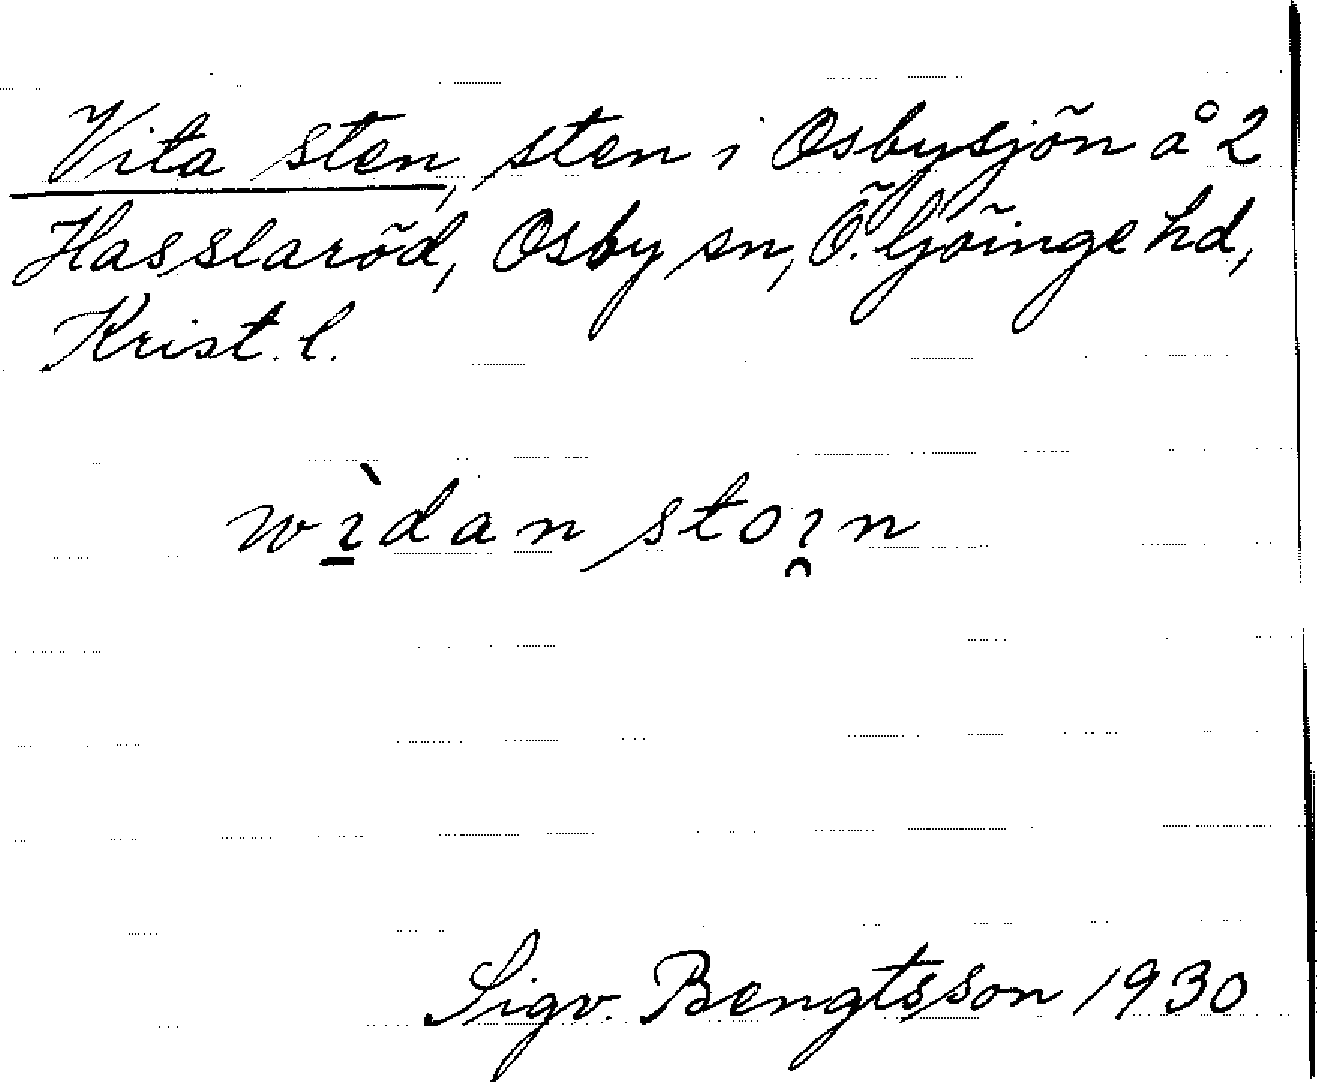 Vita sten, sten i Osbysjön å 2
Hasslaröd, Osby sn, Ö. Göinge hd,
Krist. l.
wìdan stoi̯n
Sigv. Bengtsson 1930